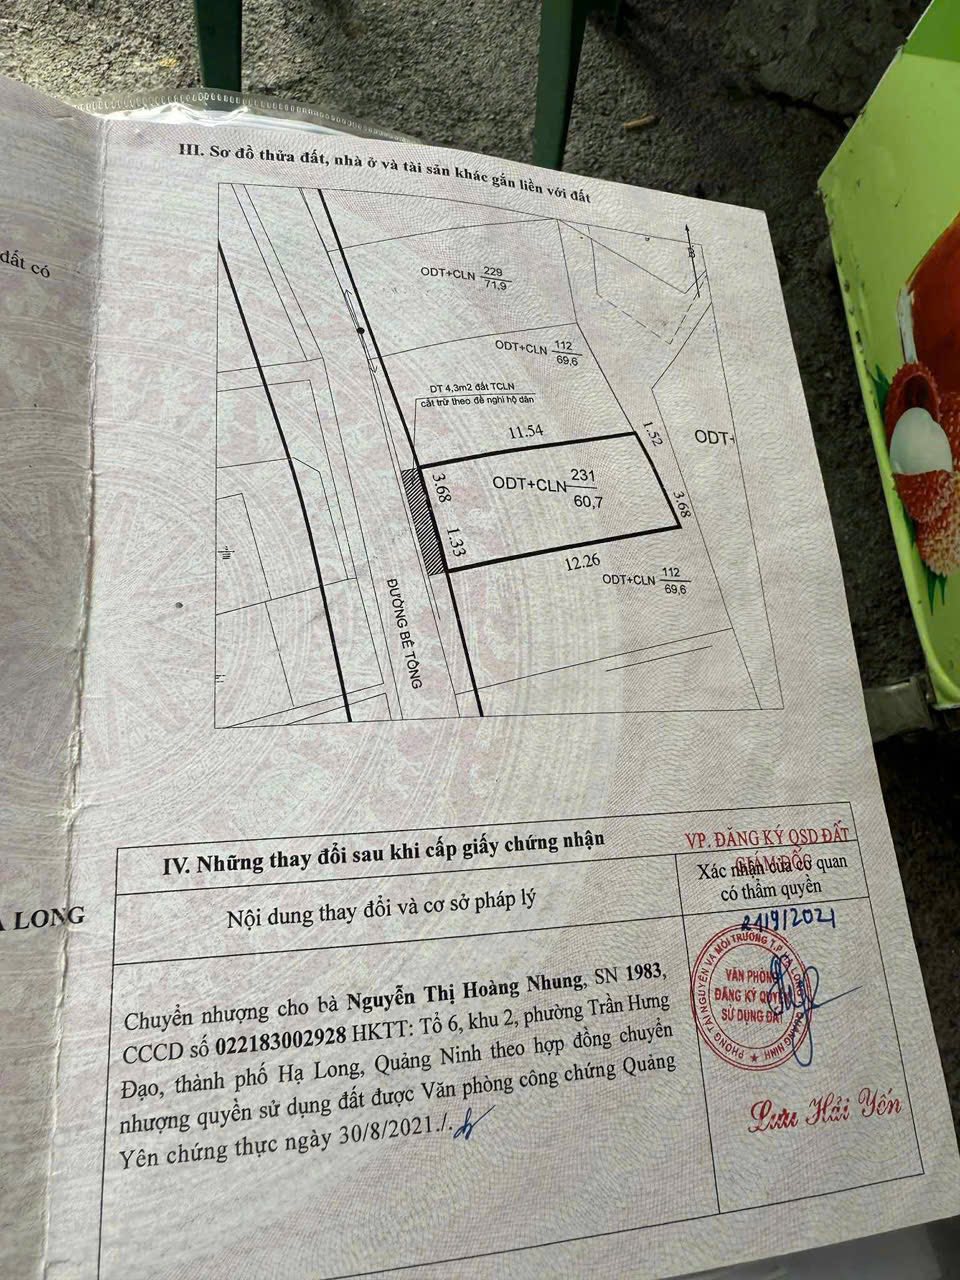 đất có
LONG
III. Sơ đồ thửa đất, nhà ở và tài sản khác gắn liền với đất
ODT+CLN 229
71,9
ODT+CLN 112
69,6
DT 4,3m2 đất TCLN
cắt trừ theo đề nghị hộ dân
11.54
1.52
ODT+
3.68
ODT+CLN 231
60,7
3.68
1.33
12.26
ODT+CLN 112
69,6
ĐƯỜNG BÊ TÔNG
IV. Những thay đổi sau khi cấp giấy chứng nhận
Nội dung thay đổi và cơ sở pháp lý
VP. ĐĂNG KÝ QSD ĐẤT
GIÁM ĐỐC
Xác nhận của cơ quan
có thẩm quyền
21/9/2021
Chuyển nhượng cho bà Nguyễn Thị Hoàng Nhung, SN 1983,
CCCD số 022183002928 HKTT: Tổ 6, khu 2, phường Trần Hưng
Đạo, thành phố Hạ Long, Quảng Ninh theo hợp đồng chuyển
nhượng quyền sử dụng đất được Văn phòng công chứng Quảng
Yên chứng thực ngày 30/8/2021./.
PHÒNG TÀI NGUYÊN VÀ MÔI TRƯỜNG T.P HẠ LONG
QUẢNG NINH
VĂN PHÒNG
ĐĂNG KÝ QUYỀN
SỬ DỤNG ĐẤT
Lưu Hải Yến